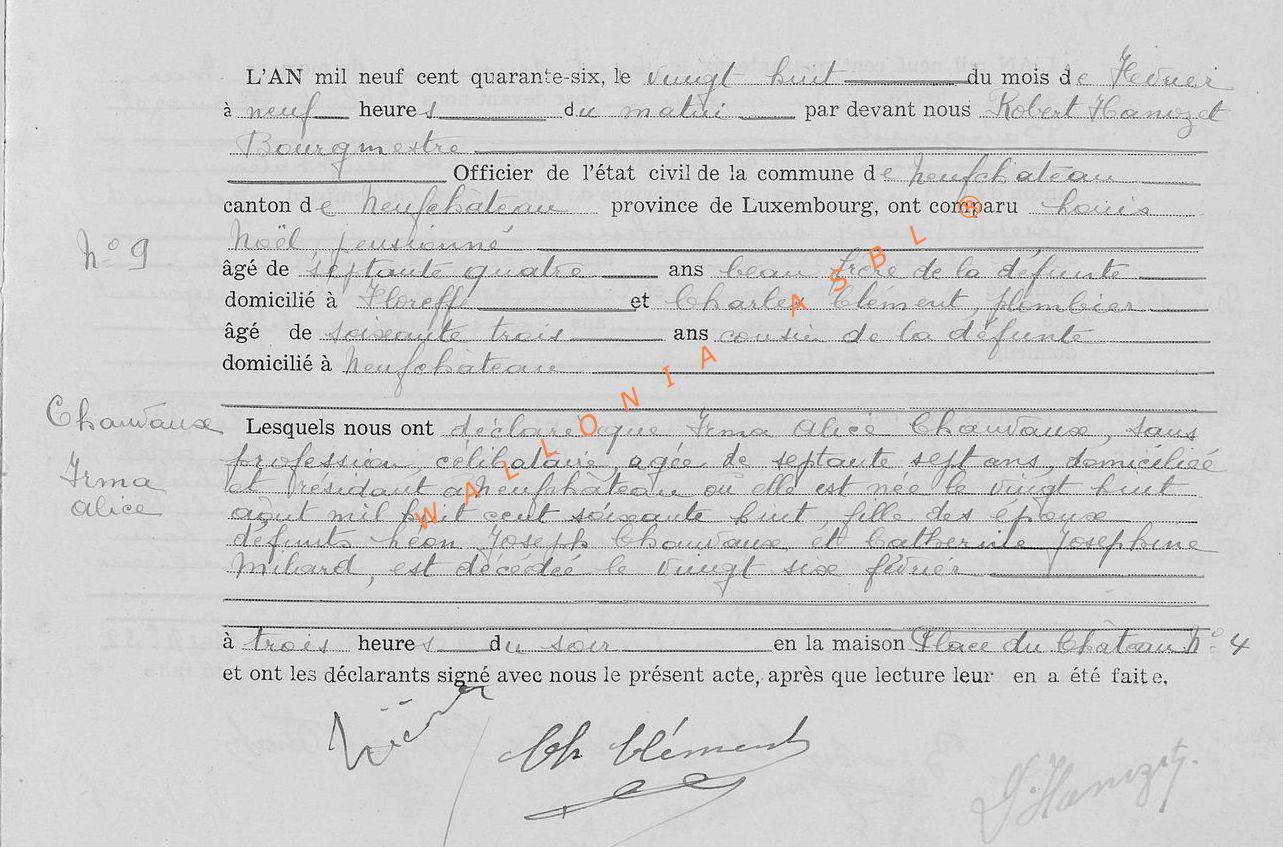 L'AN mil neuf cent quarante-six, le vingt huit du mois de Février
à neuf heures du matin par devant nous Robert Hanozet
Bourgmestre
Officier de l'état civil de la commune de Neufchâteau
canton de Neufchâteau province de Luxembourg, ont comparu Louis
Noël pensionné
N° 9
âgé de septante quatre ans beau frère de la défunte
domicilié à Floreffe et Charles Clément, plombier
âgé de soixante trois ans cousin de la défunte
domicilié à Neufchâteau
Chauvaux
Irma
Alice
Lesquels nous ont déclaré que Irma Alice Chauvaux, sans
profession, célibataire, agée de septante sept ans, domiciliée
et résidant à Neufchâteau où elle est née le vingt huit
août mil huit cent soixante huit, fille des époux
défunts Léon Joseph Chauvaux et Catherine Josephine
Milard, est décédée le vingt six février
à trois heures du soir en la maison Place du Château N° 4
et ont les déclarants signé avec nous le présent acte, après que lecture leur en a été faite.
Ch Clément
WALLONIA ASBL ®